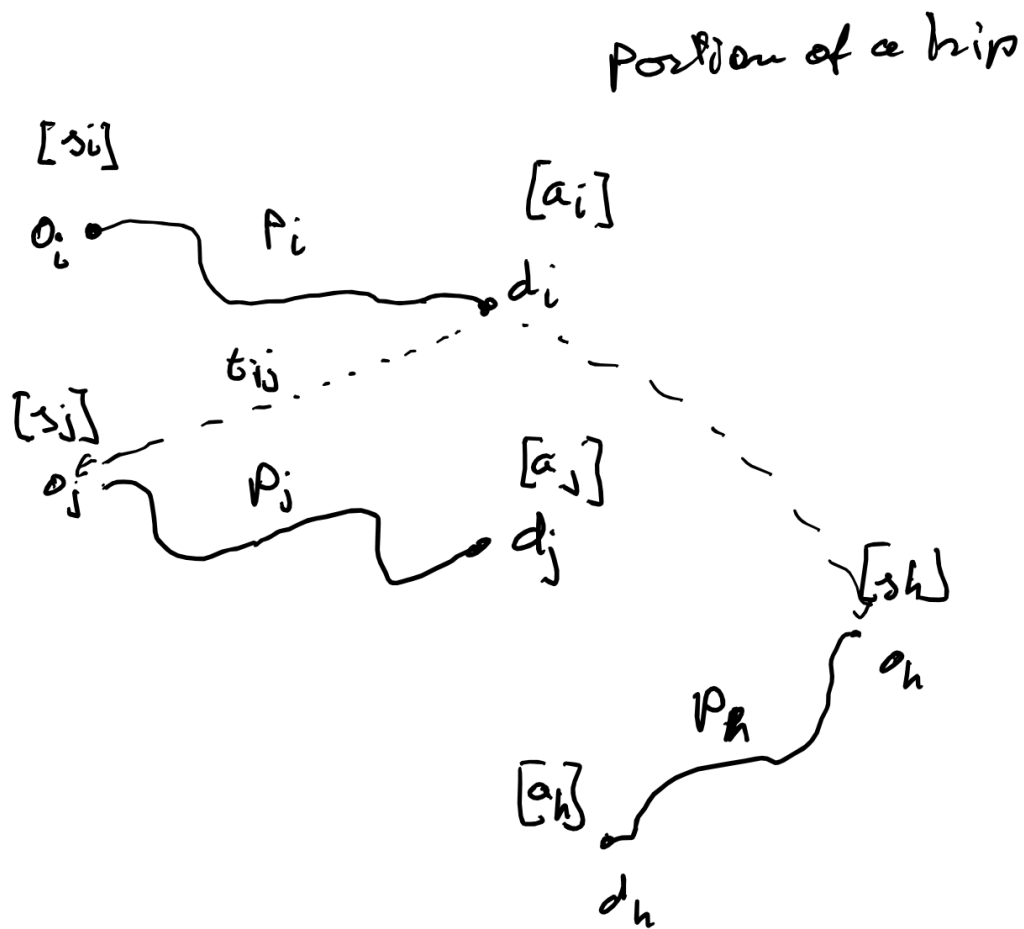 Portion of a trip
[si]
[ai]
oi
Pi
di
tij
[sj]
[aj]
oj
Pj
dj
[sh]
oh
Ph
[ah]
dh